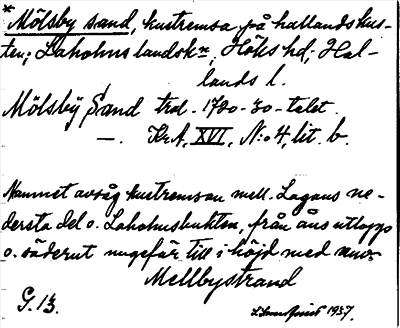 * Mölsby sand, kustremsa på hallandskus-
ten; Laholms landsk:n, Höks hd, Hal-
lands l.
Mölsby Sand trol. 1720-30-talet.
—. Kr.A, XVI, N:o 4, lit. b.
Namnet avsåg kustremsan mell. Lagans ne-
dersta del o. Laholmsbukten, från åns utlopp
o. söderut ungefär till i höjd med nuv.
Mellbystrand
G. 13.
1937.